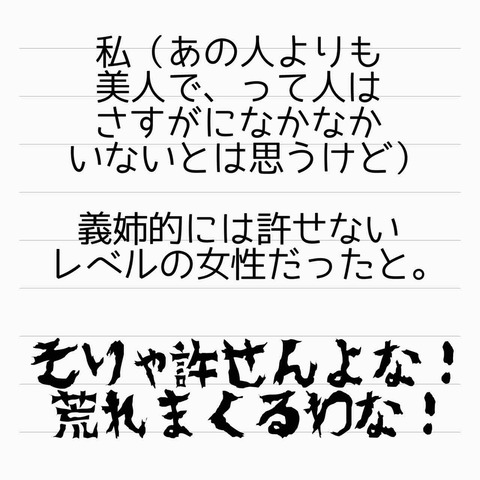 私（あの人よりも
美人で、って人は
さすがになかなか
いないとは思うけど）
義姉的には許せない
レベルの女性だったと。
そりゃ許せんよな！
荒れまくるわな！